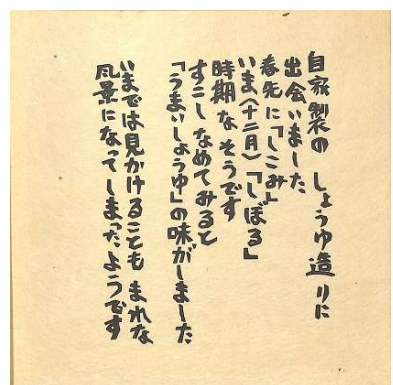 自家製の しょうゆ造りに
出会いました
春先に「しこみ」
いま(十二月)「しぼる」
時期なそうです
すこしなめてみると
「うまいしょうゆ」の味がしました
いまでは見かけることも まれな
風景になってしまったようです